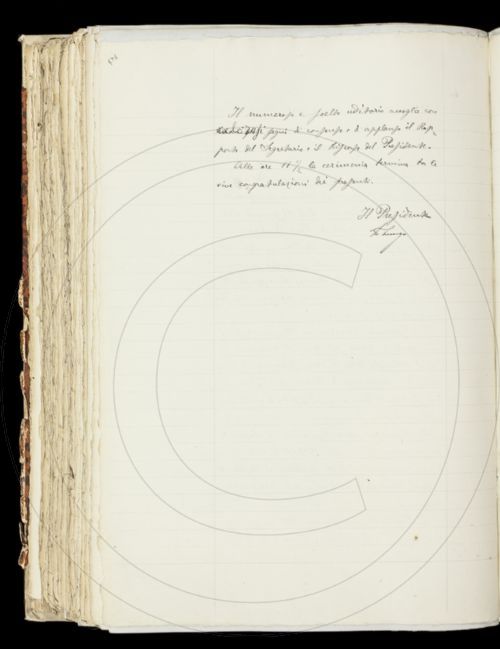 Il numeroso e scelto uditorio accoglie con
segni di consenso e di applauso il Rap-
porto del Segretario e il Discorso del Presidente.
Alle ore 11 1/2 la cerimonia termina tra le
vive congratulazioni dei presenti.
Il Presidente